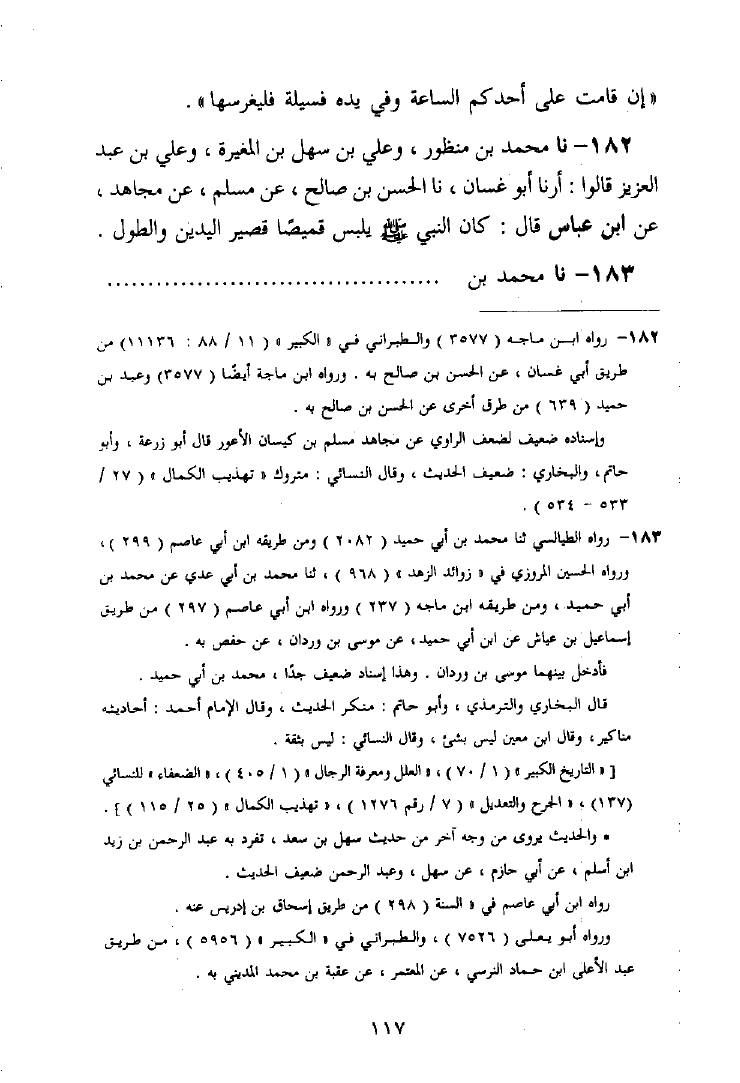 « إن قامت على أحدكم الساعة وفي يده فسيلة فليغرسها » .
١٨٢– نا محمد بن منظور ، وعلي بن سهل بن المغيرة ، وعلي بن عبد
العزيز قالوا : أرنا أبو غسان ، نا الحسن بن صالح ، عن مسلم ، عن مجاهد ،
عن ابن عباس قال : كان النبي ﷺ يلبس قميصًا قصير اليدين والطول .
١٨٣– نا محمد بن ........................................
١٨٢– رواه ابـن ماجه ( ٣٥٧٧ ) والطبراني في « الكبير » ( ١١ / ٨٨ : ١١١٣٦) من
طريق أبي غسان ، عن الحسن بن صالح به . ورواه ابن ماجة أيضًا ( ٣٥٧٧) وعبد بن
حميد ( ٦٣٩ ) من طرق أخرى عن الحسن بن صالح به .
وإسناده ضعيف لضعف الراوي عن مجاهد مسلم بن كيسان الأعور قال أبو زرعة ، وأبو
حاتم، والبخاري : ضعيف الحديث ، وقال النسائي : متروك « تهذيب الكمال » ( ٢٧ /
٥٣٣ – ٥٣٤ ) .
١٨٣– رواه الطيالسي ثنا محمد بن أبي حميد ( ٢٠٨٢ ) ومن طريقه ابن أبي عاصم ( ٢٩٩ ) ،
ورواه الحسين المروزي في « زوائد الزهد » ( ٩٦٨ ) ، ثنا محمد بن أبي عدي عن محمد بن
أبي حميد ، ومن طريقه ابن ماجه ( ٢٣٧ ) ورواه ابن أبي عاصم ( ٢٩٧ ) من طريق
إسماعيل بن عياش عن ابن أبي حميد، عن موسى بن وردان ، عن حفص به .
فأدخل بينهما موسى بن وردان . وهذا إسناد ضعيف جدًا ، محمد بن أبي حميد .
قال البخاري والترمذي ، وأبو حاتم : منكر الحديث ، وقال الإمام أحمد : أحاديثه
مناكير، وقال ابن معين ليس بشئ ، وقال النسائي : ليس بثقة .
[ « التاريخ الكبير » ( ١ / ٧٠ ) ، « العلل ومعرفة الرجال » ( ١ / ٤٠٥ ) ، « الضعفاء » للنسائي
(١٣٧) ، « الجرح والتعديل » ( ٧ / رقم ١٢٧٦ ) ، « تهذيب الكمال » ( ٢٥ / ١١٥ ) ] .
• والحديث يروى من وجه آخر من حديث سهل بن سعد ، تفرد به عبد الرحمن بن زيد
ابن أسلم ، عن أبي حازم ، عن سهل ، وعبد الرحمن ضعيف الحديث .
رواه ابن أبي عاصم في « السنة ( ٢٩٨ ) من طريق إسحاق بن إدريس عنه .
ورواه أبو يعلى ( ٧٥٢٦ ) ، والطبراني في « الكبير » ( ٥٩٥٦ ) ، من طريق
عبد الأعلى ابن حماد النرسي ، عن المعتمر ، عن عقبة بن محمد المديني به .
١١٧